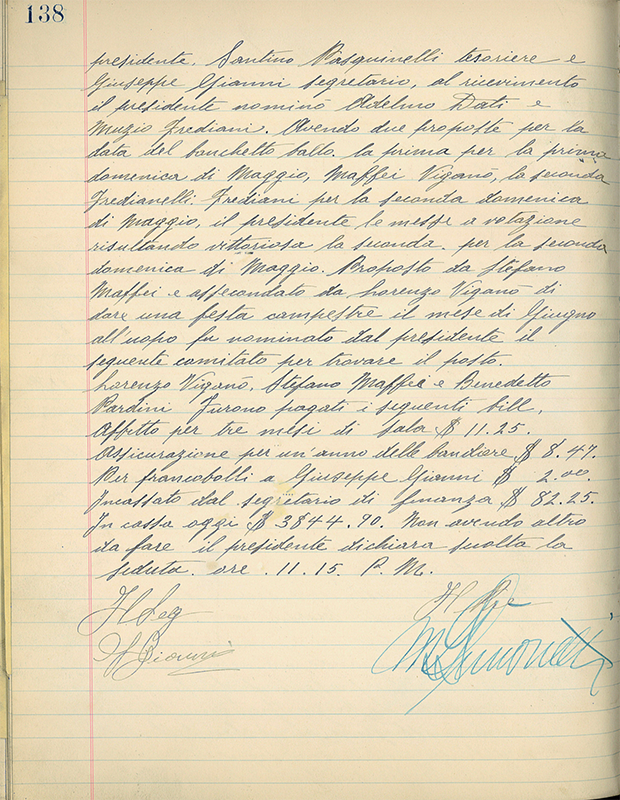 138
presidente, Santino Pasquinelli tesoriere e
Giuseppe Gianni segretario, al ricevimento
il presidente nominò Adelmo Dati e
Muzio Frediani. Avendo due proposte per la
data del banchetto ballo. la prima per la prima
domenica di Maggio, Maffei Viganò, la seconda
Fredianelli. Frediani per la seconda domenica
di Maggio, il presidente le messe a votazione
risultando vittoriosa la seconda. per la seconda
domenica di Maggio. Proposto da Stefano
Maffei e affecondato da Lorenzo Viganò di
dare una festa campestre il mese di Giugno
all'uopo fu nominato dal presidente il
seguente comitato per trovare il posto.
Lorenzo Viganò, Stefano Maffei e Benedetto
Pardini Furono pagati i seguenti bill,
Affitto per tre mesi di sala $ 11.25.
Assicurazione per un'anno delle bandiere $ 8.47.
Per francobolli a Giuseppe Gianni $ 2.00.
Incassato dal segritario di finanza $ 82.25.
In cassa oggi $ 3844.90. Non avendo altro
da fare il presidente dichiara sciolta la
seduta. ore . 11.15. P. M.
Il Seg
Il Pre
G Gianni
M Simonetti